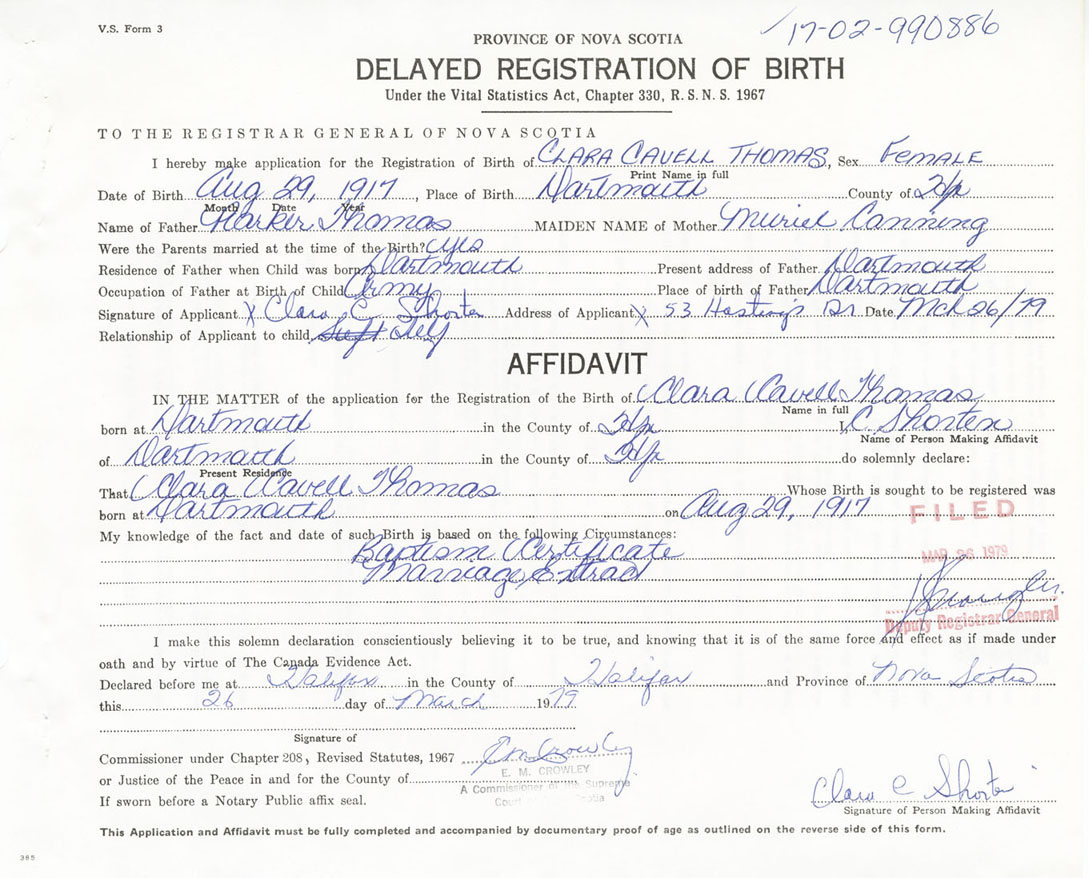 V.S. Form 3
17-02-990886
PROVINCE OF NOVA SCOTIA
DELAYED REGISTRATION OF BIRTH
Under the Vital Statistics Act, Chapter 330, R. S. N. S. 1967
TO THE REGISTRAR GENERAL OF NOVA SCOTIA
I hereby make application for the Registration of Birth of CLARA CAVELL THOMAS, Sex FEMALE
Print Name in full
Date of Birth Aug 29, 1917, Place of Birth Dartmouth County of Hfx
Month Date Year
Name of Father Harker Thomas MAIDEN NAME of Mother Muriel Canning
Were the Parents married at the time of the Birth? yes
Residence of Father when Child was born Dartmouth Present address of Father Dartmouth
Occupation of Father at Birth of Child Army Place of birth of Father Dartmouth
Signature of Applicant X Clara C. Shorten Address of Applicant X 53 Hastings Dr. Date Mch 26/79
Relationship of Applicant to child Self
AFFIDAVIT
IN THE MATTER of the application for the Registration of the Birth of Clara Cavell Thomas
Name in full
born at Dartmouth in the County of Hfx I, C. Shorten
Name of Person Making Affidavit
of Dartmouth in the County of Hfx do solemnly declare:
Present Residence
That Clara Cavell Thomas Whose Birth is sought to be registered was
born at Dartmouth on Aug 29, 1917
FILED
My knowledge of the fact and date of such Birth is based on the following Circumstances:
Baptism Certificate
MAR 26 1979
Marriage Extract
Deputy Registrar General
I make this solemn declaration conscientiously believing it to be true, and knowing that it is of the same force and effect as if made under
oath and by virtue of The Canada Evidence Act.
Declared before me at Halifax in the County of Halifax and Province of Nova Scotia
this 26 day of March 1979
Signature of
Commissioner under Chapter 208, Revised Statutes, 1967 E M Crowley
E. M. CROWLEY
or Justice of the Peace in and for the County of
A Commissioner of the Supreme
Court
If sworn before a Notary Public affix seal.
Clara C Shorten
Signature of Person Making Affidavit
This Application and Affidavit must be fully completed and accompanied by documentary proof of age as outlined on the reverse side of this form.
385